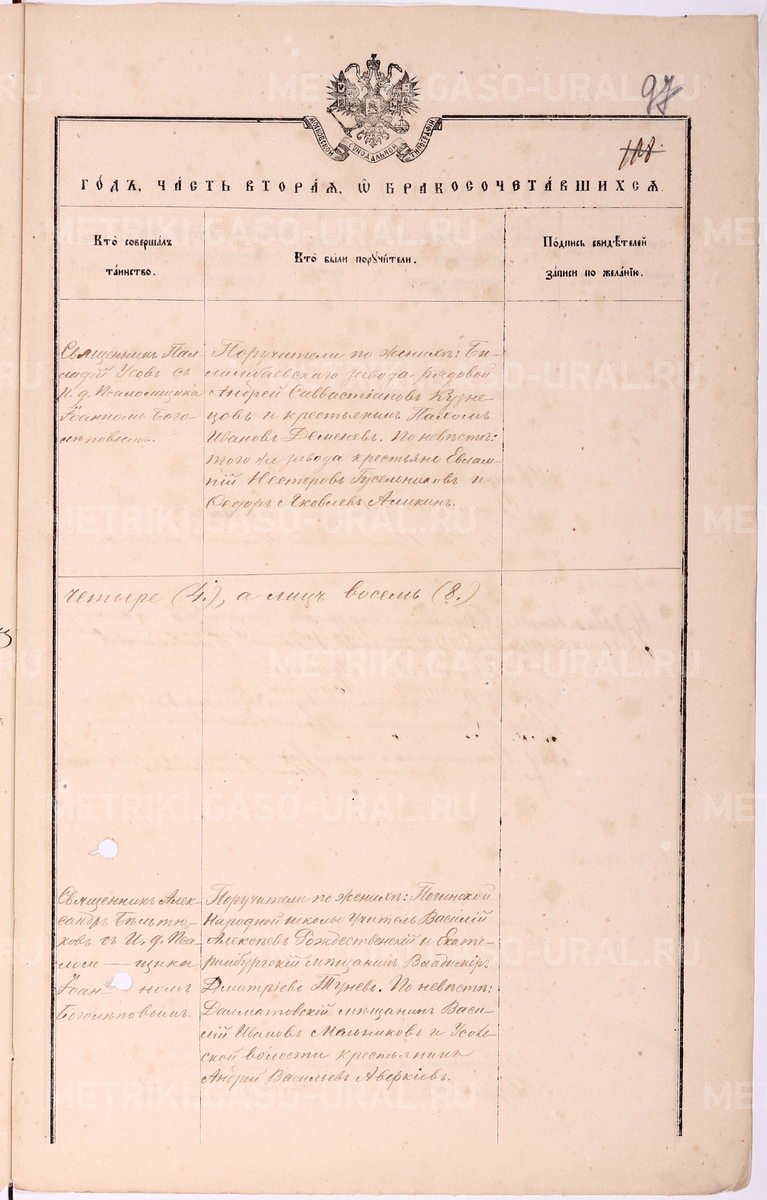 97
108.
МОСКОВСКОЙ СѴНОДАЛЬНОЙ ТИПОГРАФІИ
ГО́ДЪ, ЧА́СТЬ ВТОРА́Я, Ѡ БРАКОСОЧЕТА́ВШИХСЯ.
Кто̀ соверша́лъ
та́инство.
Кто̀ были пору́чители.
По́дпись свидѣ́телей
за́писи по жела́нію.
Священникъ Пал-
ладій Усовъ съ
И. д. Псаломщика
Іоанномъ Бого-
лѣповымъ.
Поручители по женихѣ: Би-
лимбаевскаго завода рядовой
Андрей Савватіановъ Кузне-
цовъ и крестьянинъ Пахомъ
Ивановъ Деменевъ. По невѣстѣ:
того же завода крестьяне Евлам-
пій Нестеровъ Гусельниковъ и
Ѳедоръ Яковлевъ Аликинъ.
четыре (4.), а лицъ восемь (8.)
Священникъ Алек-
сандръ Бѣльтю-
ковъ съ И. д. Пса-
лом — щика
Іоан- номъ
Боголѣповымъ.
Поручители по женихѣ: Починской
Народной школы Учитель Василій
Алексѣевъ Рождественскій и Екате-
ринбургскій мѣщанинъ Владиміръ
Дмитріевъ Тунев. По невѣстѣ:
Далматовскій мѣщанинъ Васи-
лій Ивановъ Мельниковъ и
ской волости крестьянинъ
Андрей Васильевъ Аверкіевъ.
METRIKI.GASO-URAL.RU